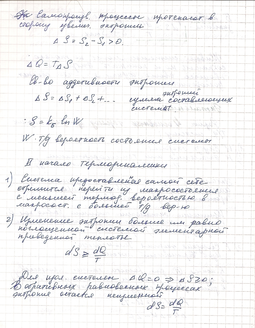 Самопроизв. процессы протекают в
сторону увелич. энтропии
Δ S = S₂ - S₁ > 0.
ΔQ = TΔS
Св-во аддитивности энтропии
ΔS = ΔS₁ + ΔS₂ + ... сумма составляющих
энтропий
системы
S = k_Б ln W
W - т/д вероятность состояния системы
II начало термодинамики
1) Система предоставленная самой себе
стремится перейти из макросостояния
с меньшей термод. вероятностью в
макросост. с большей т/д вер-ю
2) Изменение энтропии больше или равно
поглощенной системой элементарной
приведенной теплоте
dS ≥ dQ/T
Для изол. системы ΔQ = 0 ⇒ ΔS ≥ 0;
В обратимых равновесных процессах
энтропия остается неизменной
dS = dQ/T